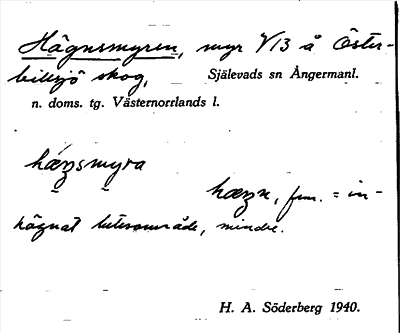 Hägnsmyren, myr V13 å Öster-
billsjö skog, Själevads sn Ångermanl.
n. doms. tg. Västernorrlands l.
hæŋsmyra
hæŋn, fem. = in-
hägnat betesområde, mindre.
H. A. Söderberg 1940.